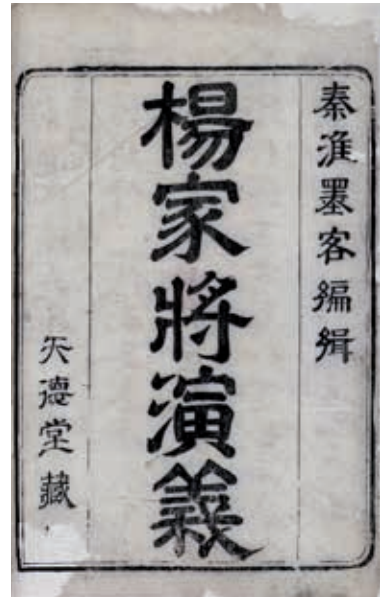 秦淮墨客編緝
楊家將演義
天德堂藏